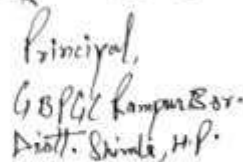 Principal,
GBPGC Rampur Bsr.
Distt. Shimla, H.P.